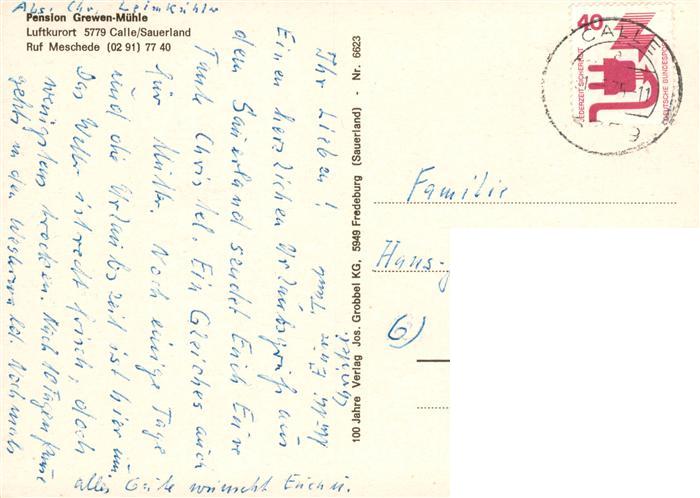 Abs. Chr. Leimkühler
Pension Grewen-Mühle
Luftkurort 5779 Calle/Sauerland
Ruf Meschede (02 91) 77 40
Ihr Lieben!
Einen herzlichen Urlaubsgruß aus
dem Sauerland sendet Euch Eure
Tante Christel. Ein Gleiches auch
für Mutter. Noch einige Tage
und die Urlaubszeit ist hier um
Das Wetter ist recht frisch, doch
wenigstens trocken. Nach 10 Tagen
gehts in den Westerwald. Nochmals
alles Gute wünscht Euch u.
Mutti Eure Tante
Christel
100 Jahre Verlag Jos. Grobbel KG, 5949 Fredeburg (Sauerland) - Nr. 6623
40
JEDERZEIT SICHERHEIT
DEUTSCHE BUNDESPOST
CALLE
Familie
Hans-
6)